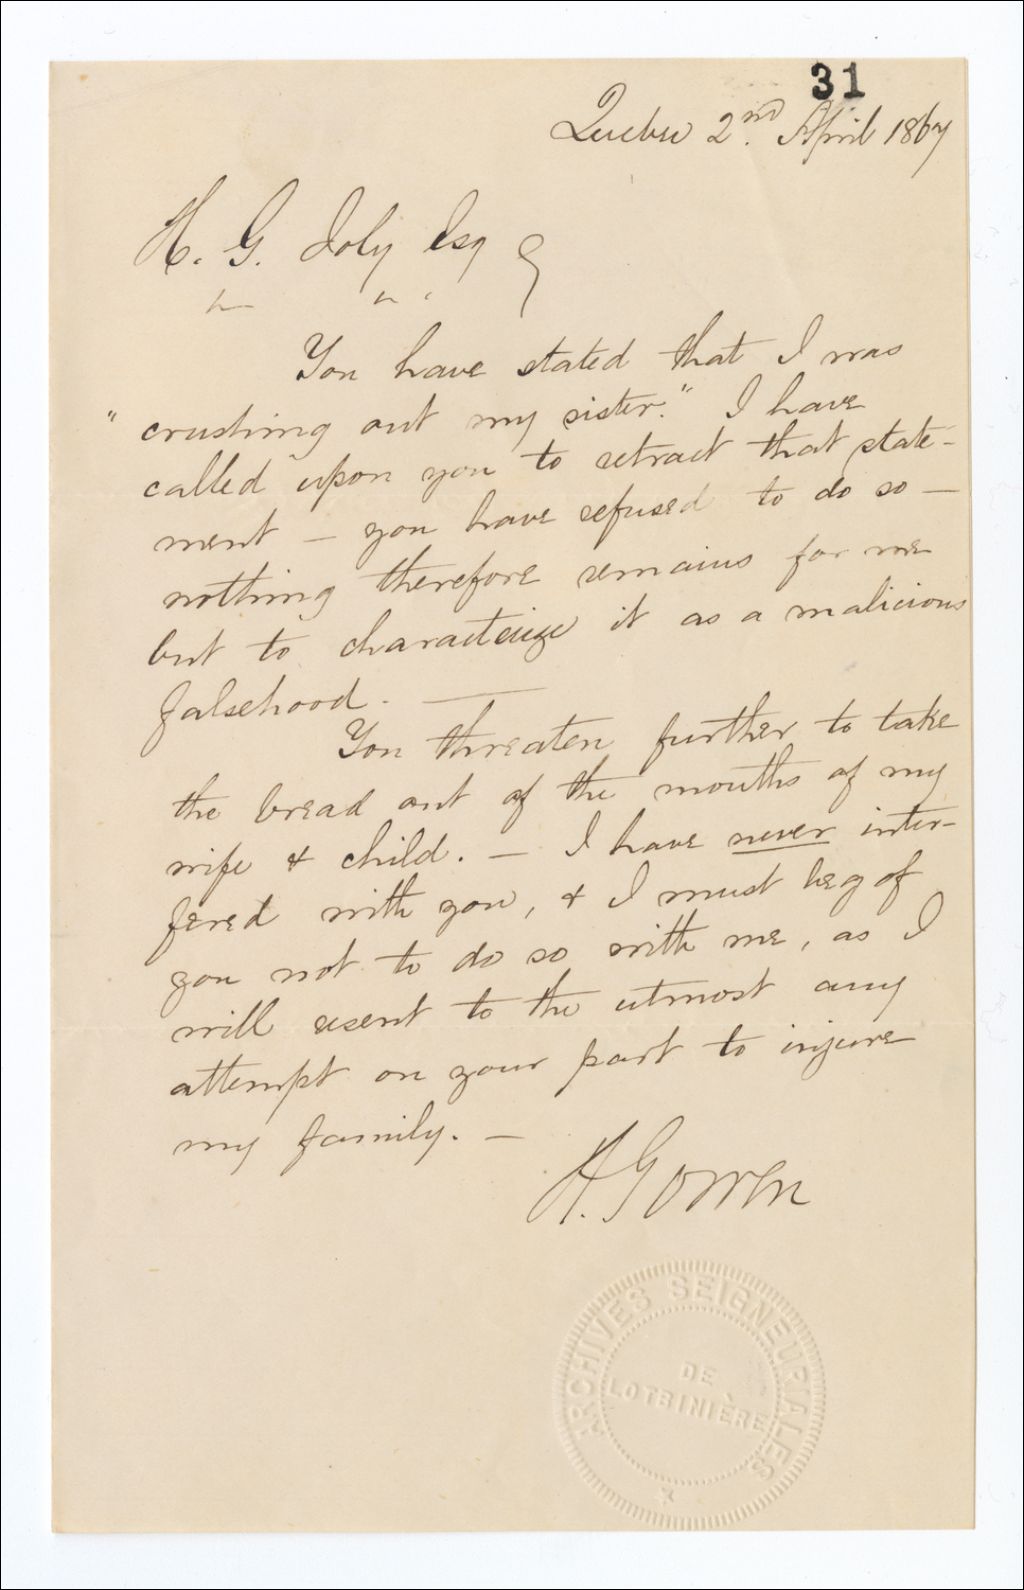 31
Quebec 2nd. April 1867
H. G. Joly Esq
You have stated that I was
"crushing out my sister." I have
called upon you to retract that state-
ment — you have refused to do so —
nothing therefore remains for me
but to characterize it as a malicious
falsehood. —
You threaten further to take
the bread out of the mouths of my
wife & child. — I have never inter-
fered with you, & I must beg of
you not to do so with me, as I
will resent to the utmost any
attempt on your part to injure
my family. —
H. Gowen
ARCHIVES SEIGNEURIALES
DE
LOTBINIÈRE